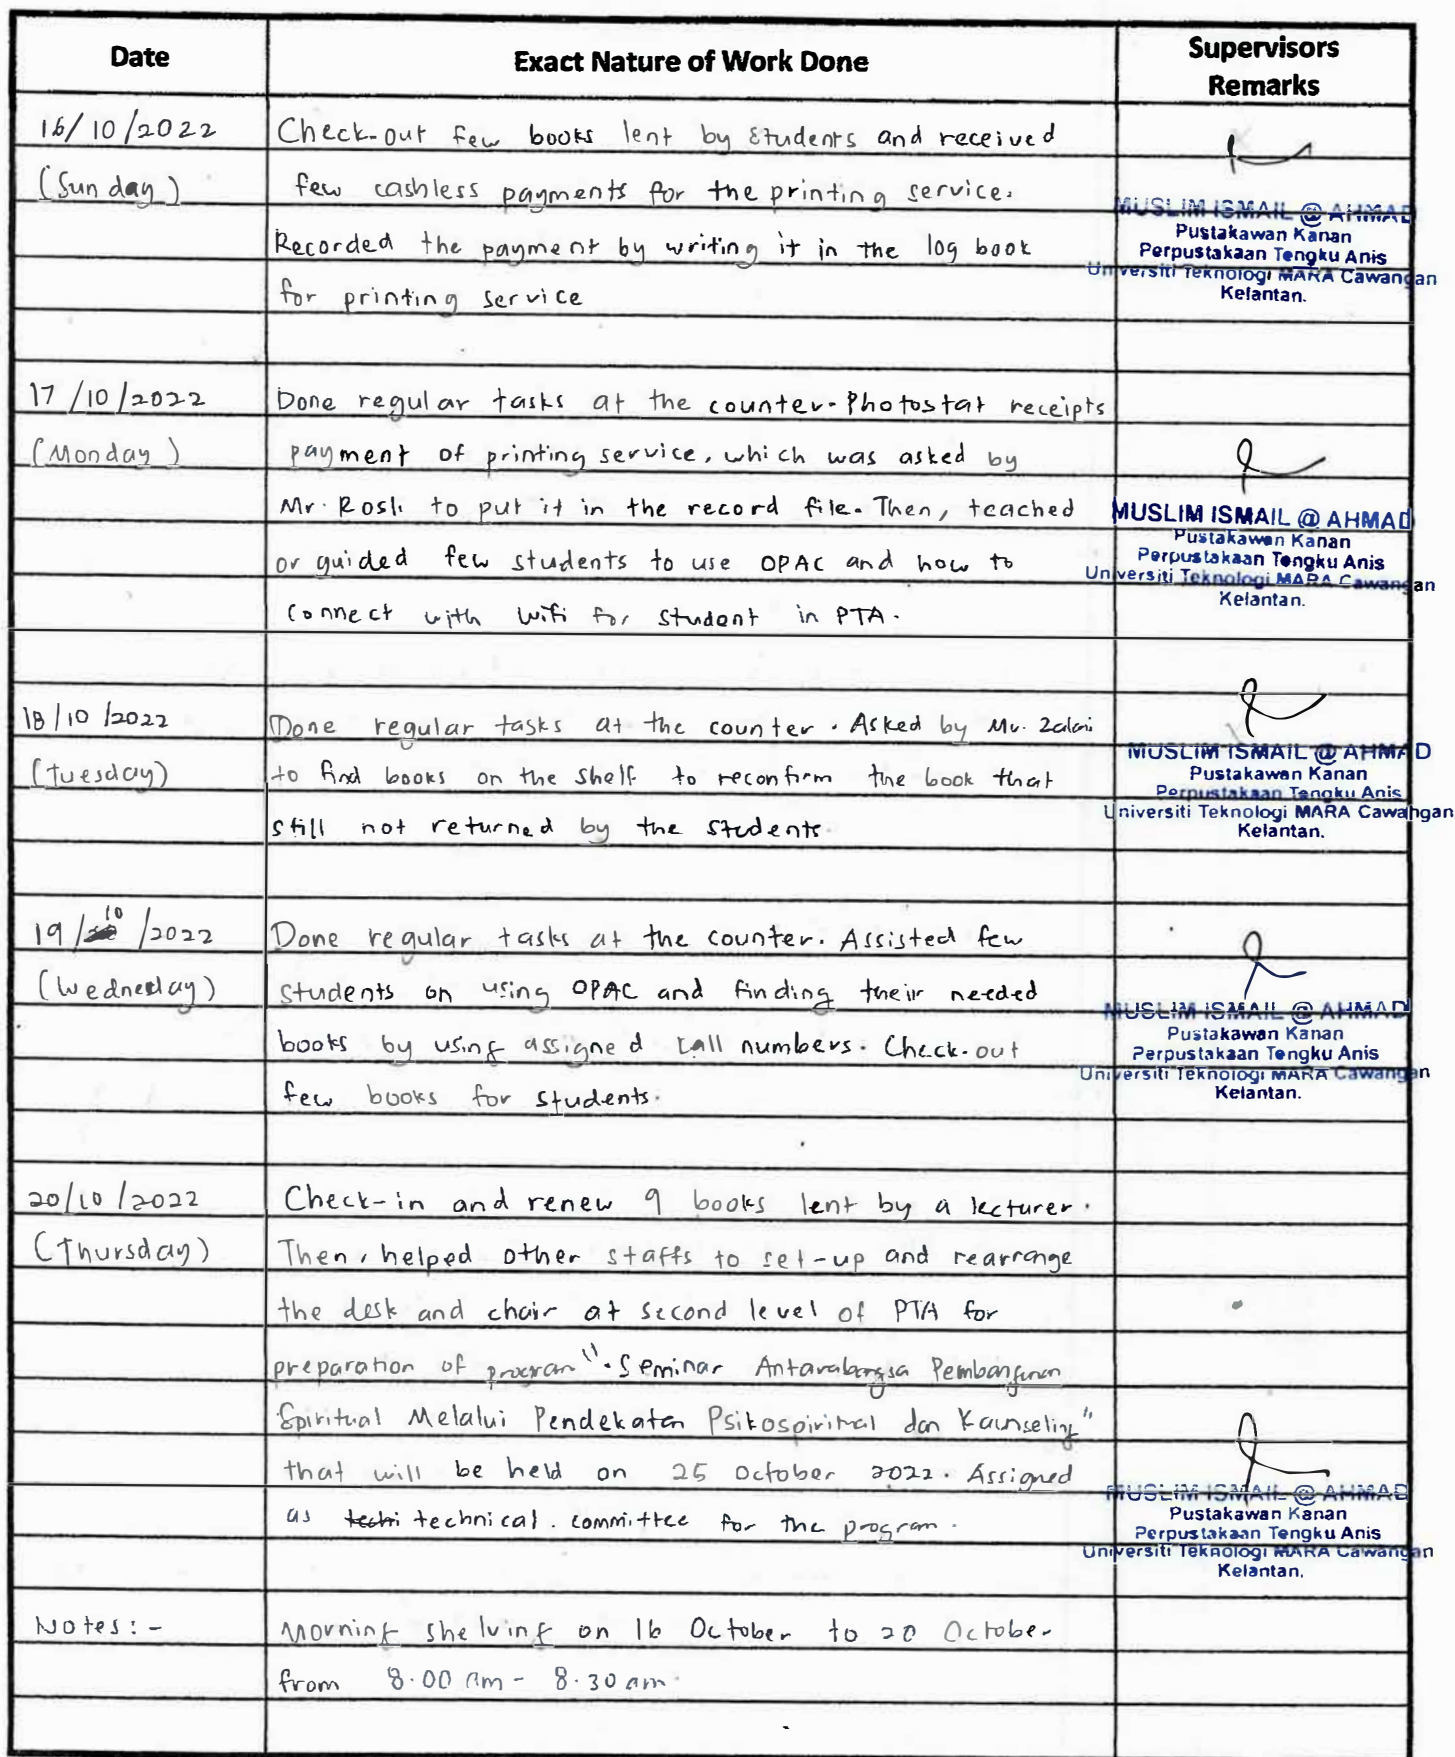 Date
Exact Nature of Work Done
Supervisors
Remarks
16/10/2022
(Sunday)
Check-out few books lent by students and received
few cashless payments for the printing service.
Recorded the payment by writing it in the log book
for printing service
MUSLIM ISMAIL @ AHMAD
Pustakawan Kanan
Perpustakaan Tengku Anis
Universiti Teknologi MARA Cawangan
Kelantan.
17/10/2022
(Monday)
Done regular tasks at the counter. Photostat receipts
payment of printing service, which was asked by
Mr. Rosli to put it in the record file. Then, teached
or guided few students to use OPAC and how to
connect with wifi for student in PTA.
MUSLIM ISMAIL @ AHMAD
Pustakawan Kanan
Perpustakaan Tengku Anis
Universiti Teknologi MARA Cawangan
Kelantan.
18/10/2022
(Tuesday)
Done regular tasks at the counter. Asked by Mr.
to find books on the shelf to reconfirm the book that
still not returned by the students.
MUSLIM ISMAIL @ AHMAD
Pustakawan Kanan
Perpustakaan Tengku Anis
Universiti Teknologi MARA Cawangan
Kelantan.
19/10/2022
(Wednesday)
Done regular tasks at the counter. Assisted few
students on using OPAC and finding their needed
books by using assigned call numbers. Check-out
few books for students.
MUSLIM ISMAIL @ AHMAD
Pustakawan Kanan
Perpustakaan Tengku Anis
Universiti Teknologi MARA Cawangan
Kelantan.
20/10/2022
(Thursday)
Check-in and renew 9 books lent by a lecturer.
Then, helped other staffs to set-up and rearrange
the desk and chair at second level of PTA for
preparation of program ". Seminar Antarabangsa Pembangunan
Spiritual Melalui Pendekatan Psikospiritual dan Kaunseling"
that will be held on 25 October 2022. Assigned
as techi technical. committee for the program.
MUSLIM ISMAIL @ AHMAD
Pustakawan Kanan
Perpustakaan Tengku Anis
Universiti Teknologi MARA Cawangan
Kelantan.
Notes:-
Morning shelving on 16 October to 20 October
from 8.00 am - 8.30 am.